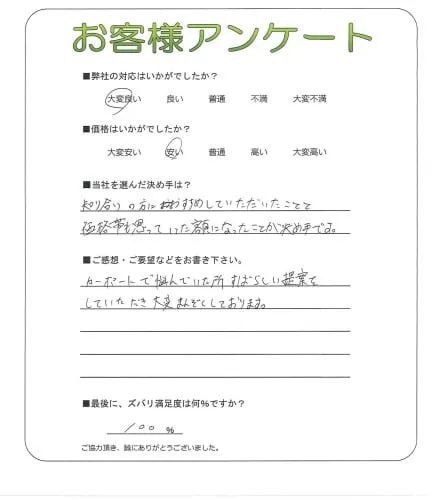 お客様アンケート
■弊社の対応はいかがでしたか?
大変良い 良い 普通 不満 大変不満
■価格はいかがでしたか?
大変安い 安い 普通 高い 大変高い
■当社を選んだ決め手は?
知り合いの方におすすめしていただいたことと
価格帯も思っていた額になったことが決め手です。
■ご感想・ご要望などをお書き下さい。
カーポートで悩んでいた所すばらしい提案を
していただき大変まんぞくしております。
■最後に、ズバリ満足度は何%ですか?
100 %
ご協力頂き、誠にありがとうございました。